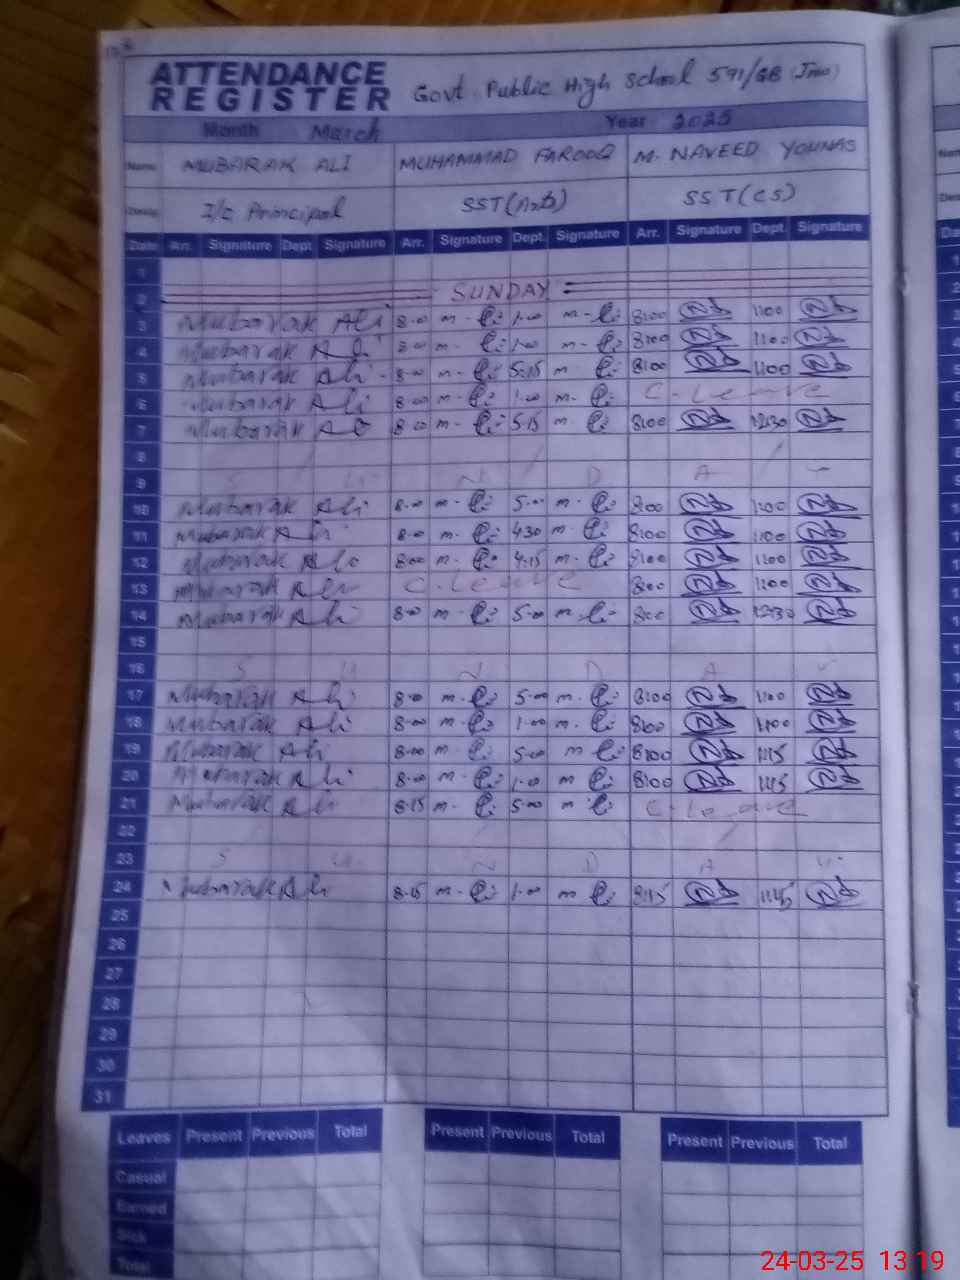 ATTENDANCE
REGISTER Govt. Public High School 591/GB
Month March Year 2025
Name MUBARAK ALI MUHAMMAD FAROOQ M. NAVEED YOUNAS
Desig. I/C Principal SST(Arts) SST(CS)
Date Arr. Signature Dept. Signature Arr. Signature Dept. Signature Arr. Signature Dept. Signature
1
2 SUNDAY
3 Mubarak Ali 8.00 1.00 8:00 1:00
4 Mubarak Ali 8.00 1.00 8:00 1:00
5 Mubarak Ali 8.00 5.15 8:00 1:00
6 Mubarak Ali 8.00 1.00 C. Leave
7 Mubarak Ali 8.00 5.15 8:00 12:30
8
9 S U N D A Y
10 Mubarak Ali 8.00 5.00 8:00 1:00
11 Mubarak Ali 8.00 4.30 8:00 1:00
12 Mubarak Ali 8.00 4.15 8:00 1:00
13 Mubarak Ali C. Leave 8:00 1:00
14 Mubarak Ali 8.00 5.00 8:00 12:30
15
16 S U N D A Y
17 Mubarak Ali 8.00 5.00 8:00 1:00
18 Mubarak Ali 8.00 1.00 8:00 1:00
19 Mubarak Ali 8.00 5.00 8:00 1:15
20 Mubarak Ali 8.00 1.00 8:00 1:15
21 Mubarak Ali 8.15 5.00 C. Leave
22
23 S U N D A Y
24 Mubarak Ali 8.15 1.00 8:15
25
26
27
28
29
30
31
Leaves Present Previous Total Present Previous Total Present Previous Total
Casual
Earned
Sick
Total
24-03-25 13:19